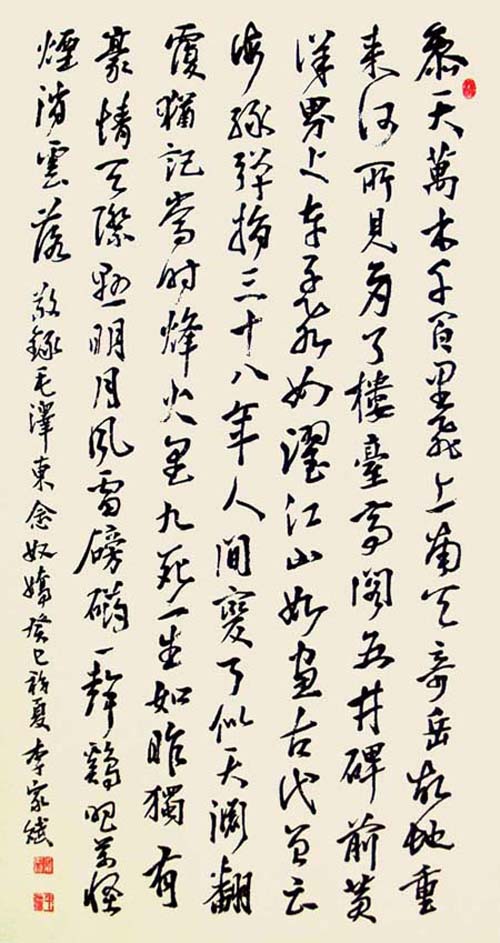 參天萬木千百里飛上南天奇岳故地重
來何所見多了樓臺亭閣五井碑前黄
洋界上車子飛如躍江山如畫古代曾云
海綠彈指三十八年人間變了似天淵翻
覆猶記當時烽火里九死一生如昨獨有
豪情天際懸明月風雷磅礴一聲鷄唱萬怪
煙消雲落 敬錄毛澤東念奴嬌 癸巳 夏 李家斌